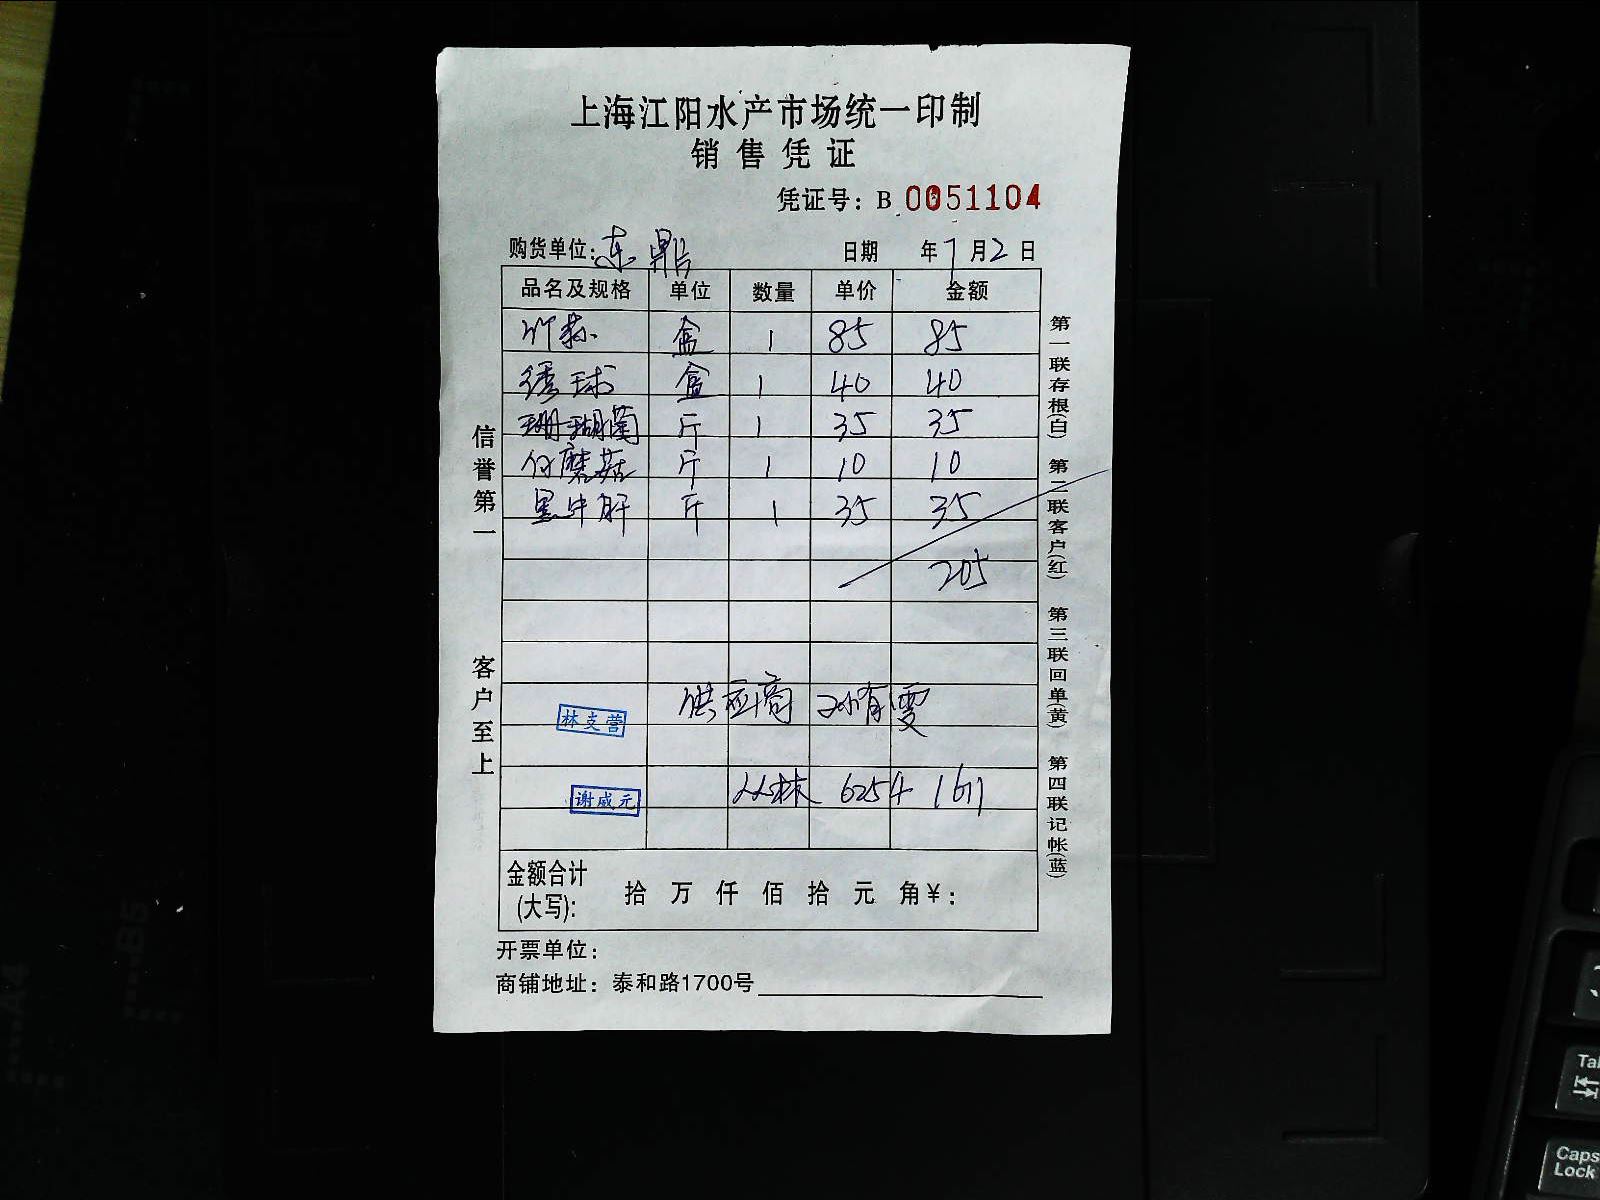 上海江阳水产市场统一印制
销售凭证
凭证号：B 0051104
购货单位：东鼎 日期 年 7 月 2 日
品名及规格 单位 数量 单价 金额
竹荪 盒 1 85 85
绣球 盒 1 40 40
珊瑚菌 斤 1 35 35
仔蘑菇 斤 1 10 10
黑牛肝 斤 1 35 35
205
供应商 孙有雯
林支营
丛林 6254 1611
谢威元
金额合计(大写): 拾 万 仟 佰 拾 元 角 ¥：
开票单位：
商铺地址：泰和路1700号
信誉第一
客户至上
第一联存根(白) 第二联客户(红) 第三联回单(黄) 第四联记帐(蓝)
A4
B5
Caps
Lock